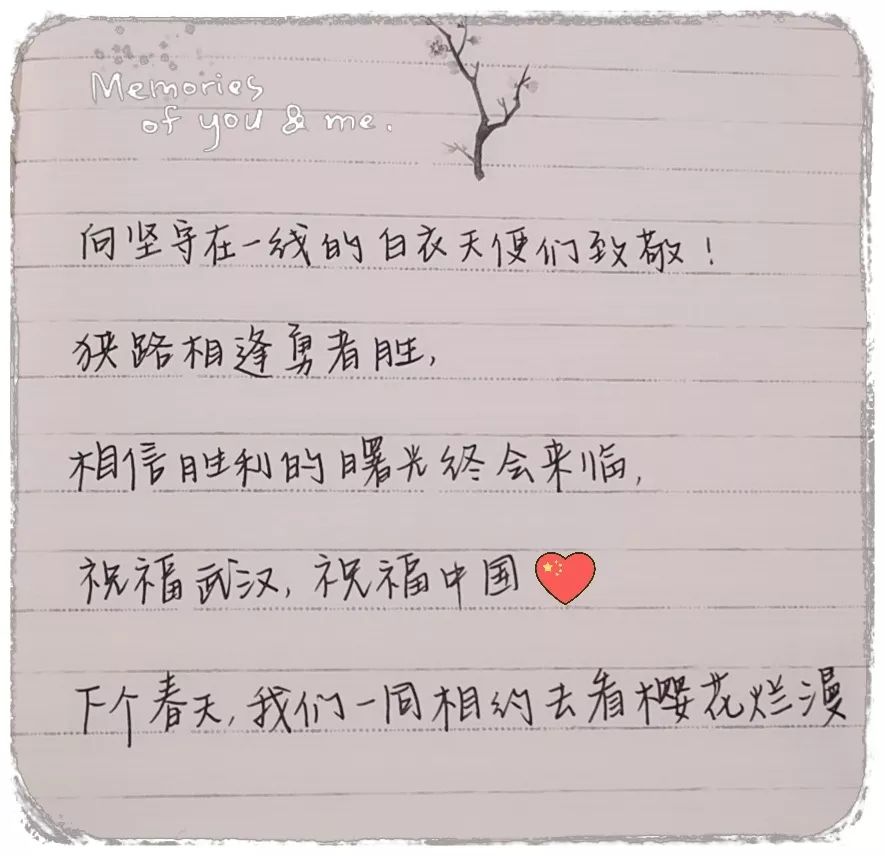 Memories
of you & me.
向坚守在一线的白衣天使们致敬！
狭路相逢勇者胜，
相信胜利的曙光终会来临，
祝福武汉，祝福中国
下个春天，我们一同相约去看樱花烂漫